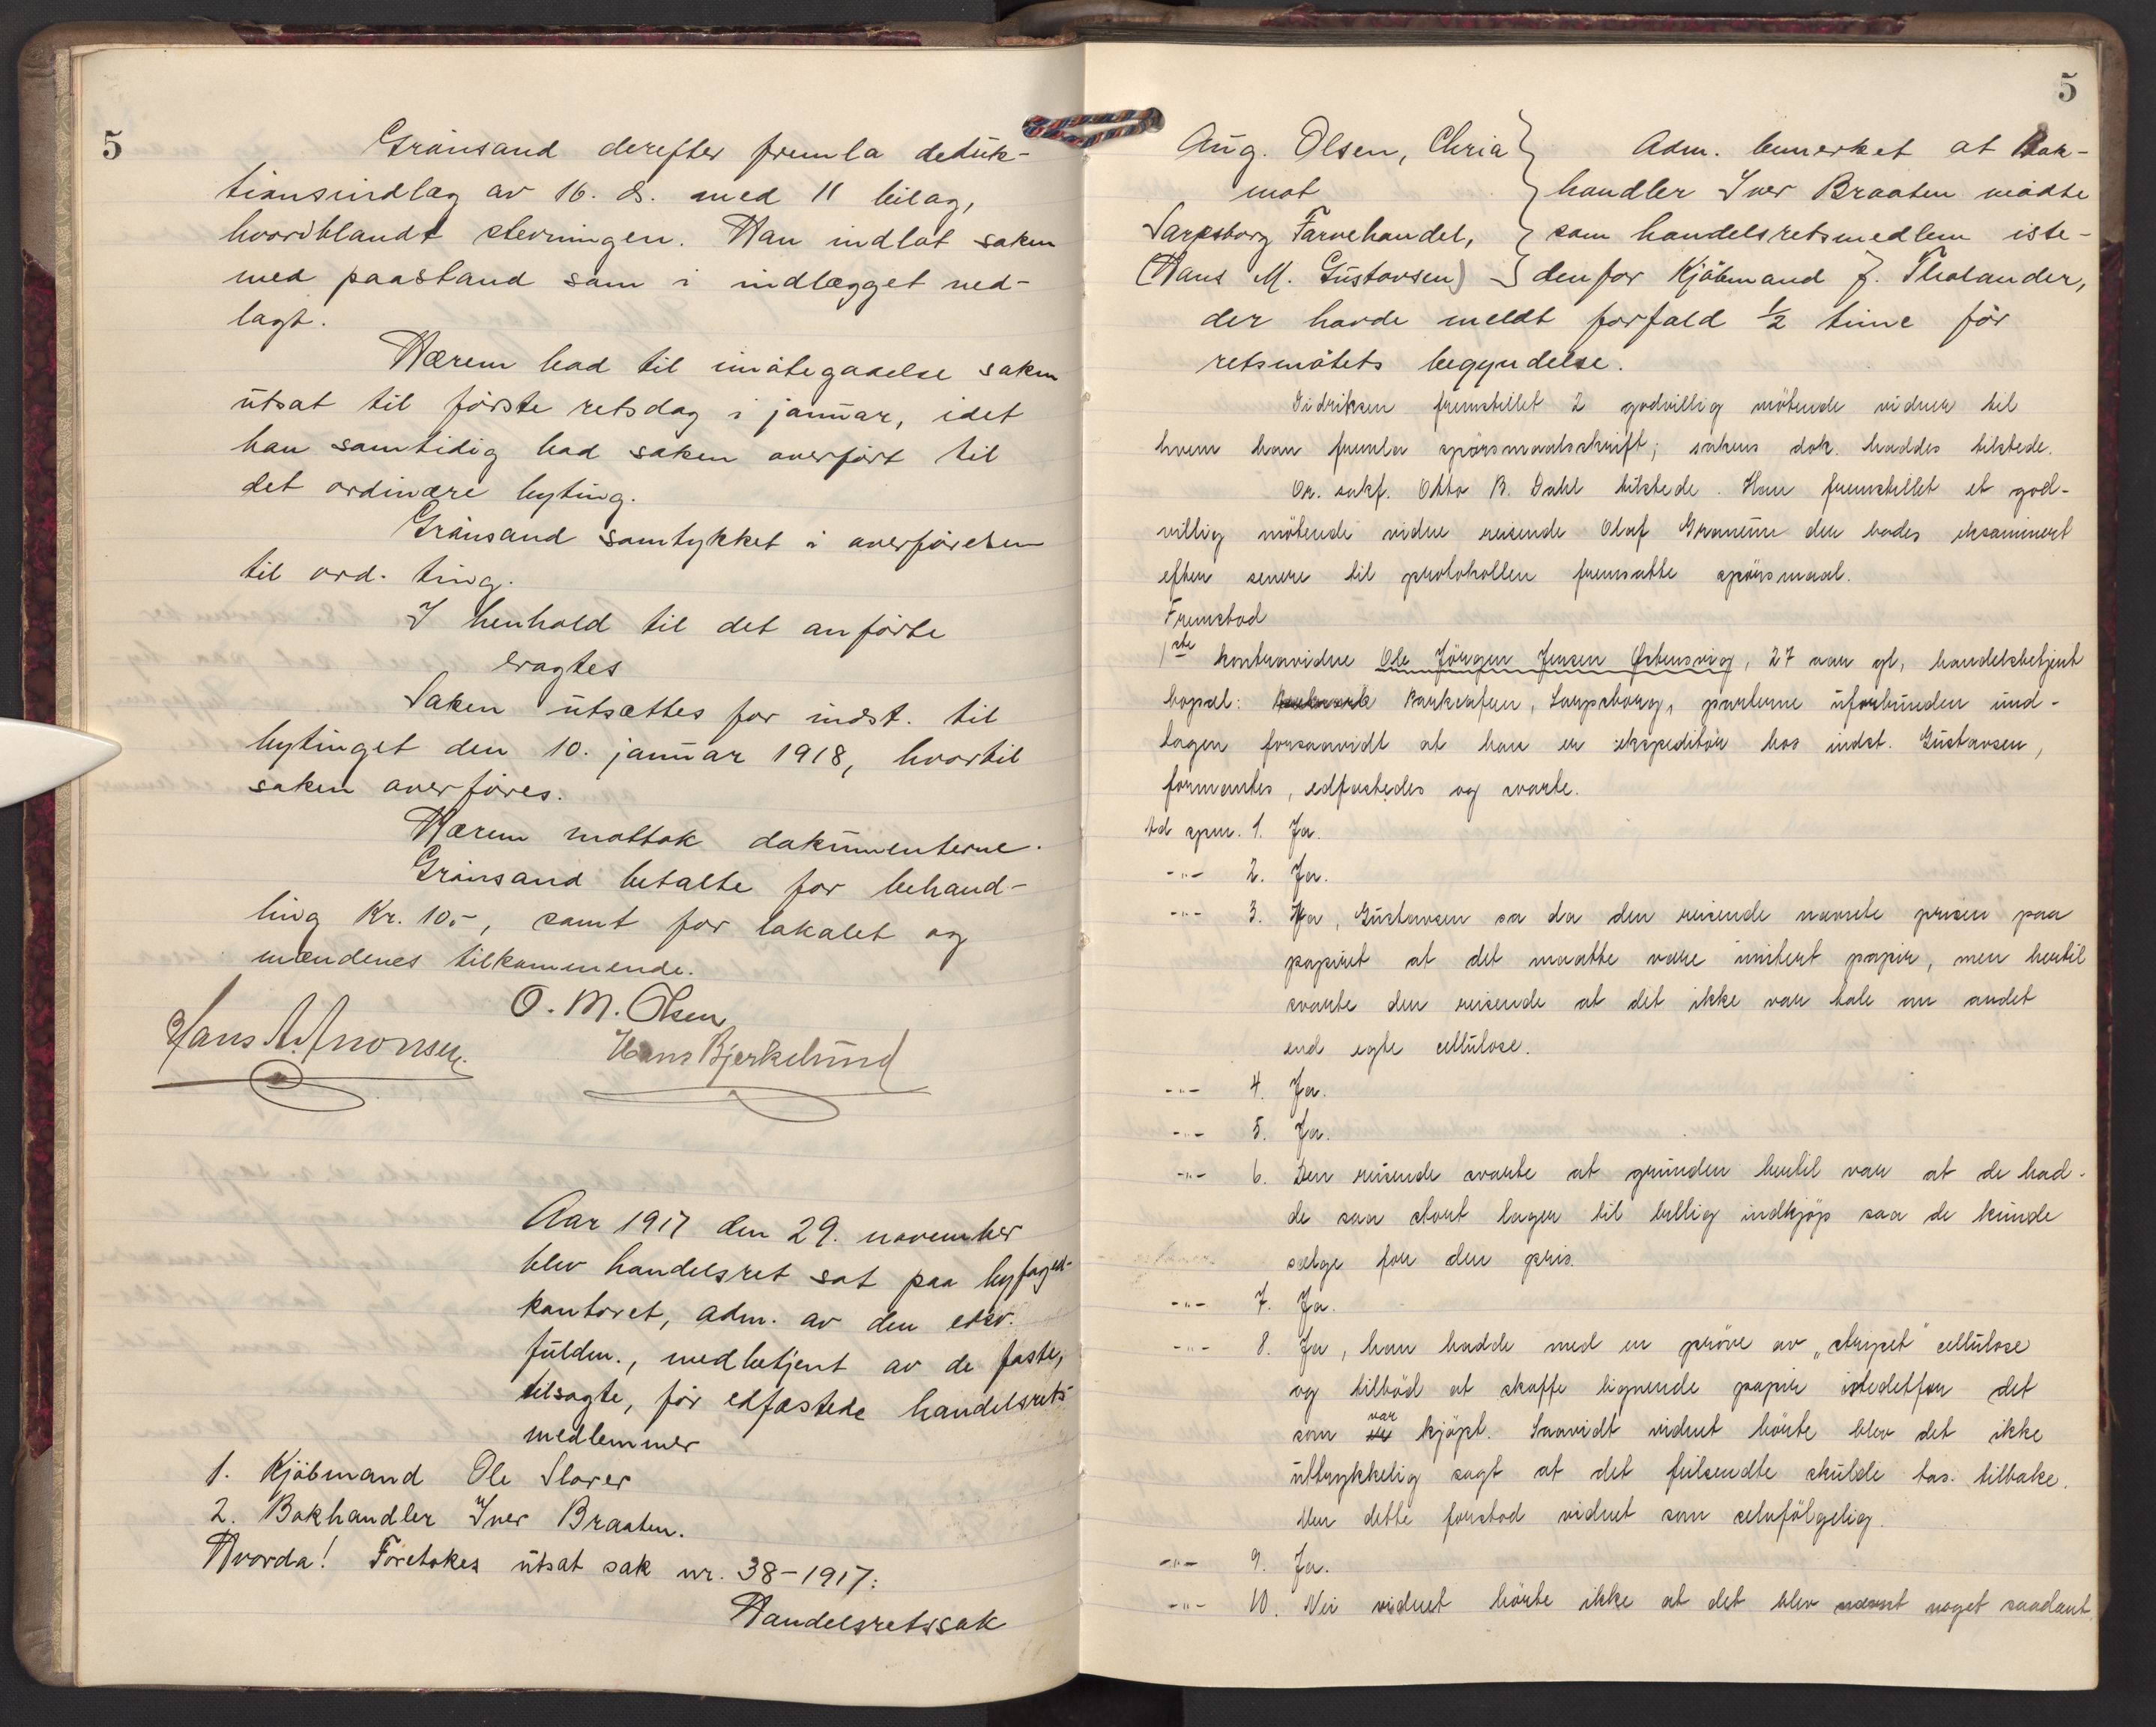 5
Grönsand derefter fremla deduk-
tionsindlæg av 16. ds. med 11 bilag,
hvoriblandt stevningen. Han indlot saken
med paastand som i indlægget ned-
lagt.
Hærem bad til imötegaaelse saken
utsat til förste retsdag i januar, idet
han samtidig bad saken overfört til
det ordinære byting.
Grönsand samtykket i overförelsen
til ord. ting.
I henhold til det anförte
eragtes
Saken utsættes for indst. til
bytinget den 10. januar 1918, hvortil
saken overföres.
Hærem mottok dokumenterne.
Grönsand betalte for behand-
ling Kr. 10.-, samt for lokalet og
mændenes tilkommende.
O. M. Olsen
Hans A. Aronsen. Hans Bjerkelund
Aar 1917 den 29. november
blev handelsret sat paa byfoged-
kontoret, adm. av den edsv.
fuldm., medbetjent av de faste,
tilsagte, för edfæstede handelsrets-
medlemmer
1. Kjöbmand Ole Storer
2. Bokhandler Iver Braaten.
Hvorda! Foretokes utsat sak nr. 38-1917:
Handelsretssak
5
Aug. Olsen, Chria } Adm. bemerket at Bok-
mot } handler Iver Braaten mödte
Sarpsborg Farvehandel, } som handelsretsmedlem iste-
(Hans M. Gustavsen) } denfor Kjöbmand J. Tholander,
der havde meldt forfald 1/2 time för
retsmötets begyndelse.
Didriksen fremstillet 2 godvillig mötende vidner til
hvem han fremla spörsmaalsskrift; sakens dok. haddes tilstede.
Or. sakf. Otto B. Dahl tilstede. Han fremstillet et god-
villig mötende vidne reisende Olaf der bades eksaminert
efter senere til protokollen fremsatte spörsmaal.
Fremstod
1ste kontravidne Ole Jörgen Jensen Östensvig, 27 aar gl, handelsbetjent
bopæl: Sarpsborg, parterne uforbunden und-
tagen forsaavidt at han er ekspeditör hos indst. Gustavsen,
formantes, edfæstedes og svarte.
td spm. 1. Ja.
-"- 2. Ja.
-"- 3. Ja, Gustavsen sa da den reisende nævnte prisen paa
papiret at det maatte være imitert papir, men hertil
svarte den reisende at det ikke var tale om andet
end egte cellulose.
-"- 4. Ja.
-"- 5. Ja.
-"- 6. Den reisende svarte at grunden hertil var at de had-
de saa stort lager til billig indkjöp saa de kunde
sælge for den pris.
-"- 7. Ja.
-"- 8. Ja, han hadde med en pröve av „stripet" cellulose
og tilböd at skaffe lignende papir istedetfor det
som var kjöpt. Saavidt vidnet hörte blev det ikke
uttrykkelig sagt at det feilsendte skulde tas. tilbake.
Men dette forstod vidnet som selvfölgelig.
-"- 9. Ja.
-"- 10. Nei vidnet hörte ikke at det blev nævnt noget saadant